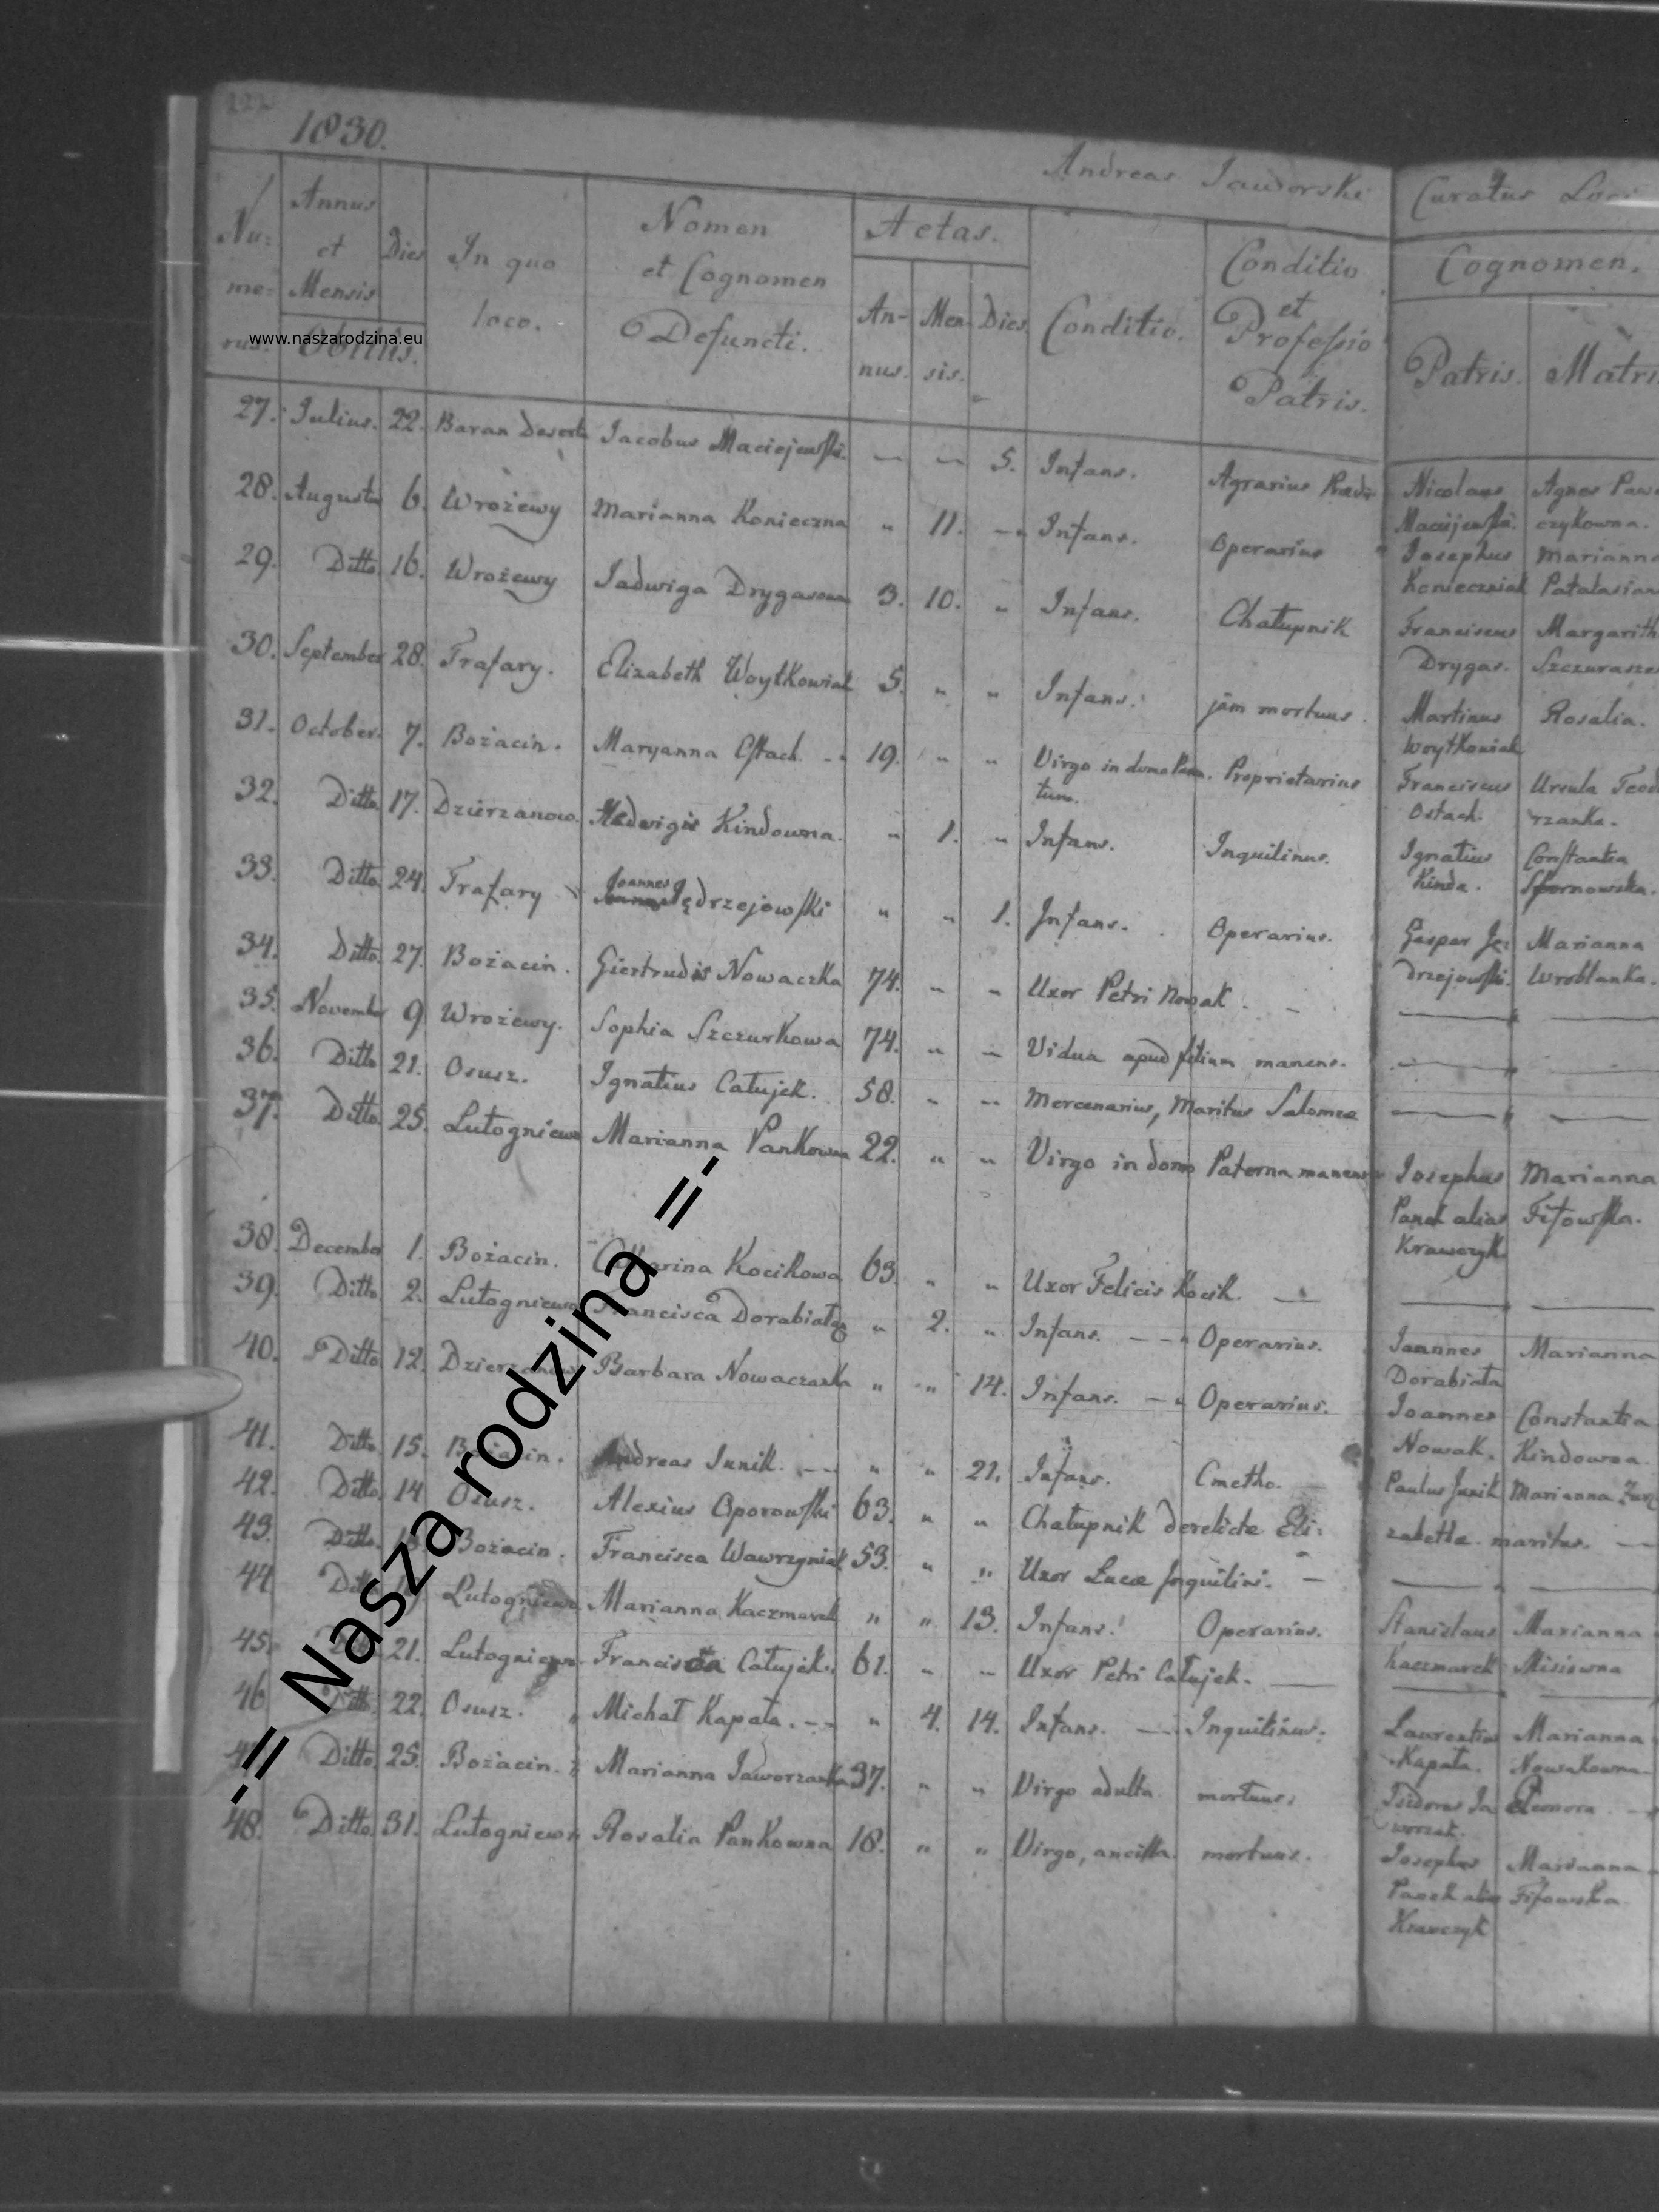 1830.
Andreas Jaworski Curatus Loci
Nu-
me-
rus.
Annus
et
Mensis
Obitus.
Dies
In quo
loco.
Nomen
et Cognomen
Defuncti.
Aetas.
An-
nus.
Men-
sis.
Dies
Conditio.
Conditio
et
Professio
Patris.
Cognomen.
Patris. Matri
www.naszarodzina.eu
27. Julius. 22. Baran Jacobus Maciejewski. — — 5. Infans. Agrarius Nicolaus Agnes Paw
Maciejewski. czykowna.
28. Augustus 6. Wrożewy Marianna Konieczna " 11. — Infans. Operarius Josephus Marianna
Konieczniak Patalasian
29. Ditto 16. Wrożewy Jadwiga Drygasowna 3. 10. " Infans. Chałupnik Franciscus Margarith
Drygas. Szczurasze
30. September 28. Trafary. Elizabeth Woytkowiak 5. " " Infans. jam mortuus. Martinus Rosalia.
Woytkowiak
31. October. 7. Bożacin. Maryanna Ostach. 19. " " Virgo in domo Paren. Proprietarius Franciscus Ursula Teod
tum. Ostach. rzanka.
32. Ditto 17. Dzierzanow. Hedwigis Kindowna. " 1. " Infans. Inquilinus. Ignatius Constantia
Kinda. Sbornowska.
33. Ditto 24. Trafary Joannes Jędrzejowski " " 1. Infans. Operarius. Gaspar Ję: Marianna
drzejowski. Wroblanka.
34. Ditto 27. Bożacin. Giertrudis Nowaczka 74. " " Uxor Petri Nowak.
35. November 9 Wrożewy. Sophia Szczurkowa 74. " — Vidua apud filium manens.
36. Ditto 21. Osusz. Ignatius Całujek. 58. " " Mercenarius, Maritus Salomea
37. Ditto 25. Lutogniewo Marianna Pankowna 22. " " Virgo in domo Paterna manens Josephus Marianna
Panek alias Fitowska.
Krawczyk
38. December 1. Bożacin. Catharina Kocikowa 63. " " Uxor Felicis Kocik. —
39. Ditto 2. Lutogniewo Francisca Dorabiała " 2. " Infans. — Operarius. Joannes Marianna
Dorabiała
40. Ditto 12. Dzierzanow Barbara Nowaczanka " " 14. Infans. — Operarius. Joannes Constantia
Nowak. Kindowna.
41. Ditto 15. Bożacin. Andreas Junik. — " " 21. Infans. Cmetho. Paulus Junik Marianna
42. Ditto 14 Osusz. Alexius Oporowski 63. " " Chałupnik derelictae Eli-
zabetha. maritus. —
43. Ditto Bożacin. Francisca Wawrzyniak 53. " " Uxor Lucae Inquilini. —
44 Ditto Lutogniewo Marianna Kaczmarek " " 13. Infans. Operarius. Stanislaus Marianna
Kaczmarek Misiowna
45. 21. Lutogniewo Francisca Całujek. 61. " " Uxor Petri Całujek. —
46 Ditto. 22. Osusz. Michał Kapała. — " 4. 14. Infans. — Inquilinus. Laurentius Marianna
Kapała. Nowakowna.
47 Ditto 25. Bożacin. Marianna Jaworzanka 37. " " Virgo adulta. mortuus. Isidorus Ja Eleonora. —
worzak.
48. Ditto 31. Lutogniewo Rosalia Pankowna 18. " " Virgo, ancilla. mortuus. Josephus Marianna
Panek alias Fitowska
Krawczyk
-= Nasza rodzina =-